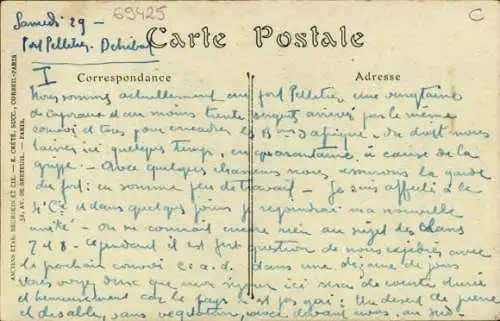 Samedi 29 -
69425
C
Fort Pelletier. Dehibat
Carte Postale
I
Correspondance
Adresse
Nous sommes actuellement au fort Pelletier, une vingtaine
de caporaux au moins trente sergents arrivés par le même
convoi et tous pour encadrer les Bons d'Afrique. On doit nous
laisser ici quelques temps, en quarantaine, à cause de la
grippe. - Avec quelques chasseurs nous assurons la garde
du fort: en somme peu de travail - Je suis affecté à la
4e Cie et dans quelques jours je rejoindrai ma nouvelle
unité - on ne connait encore rien au sujet des classes
7 et 8. Cependant il est fort question de nous expédier avec
le prochain convoi c.à.d. dans une dizaine de jours
Vous voyez donc que mon séjour ici sera de courte durée
et heureusement car le pays n'est pas gai: Un désert de pierres
et de sable, sans végétation, avec devant nous, au Sud
ANCIENS ETAB. NEURDEIN ET CIE - E. CRÉTÉ, SUCC., CORBEIL-PARIS
52, AV. DE BRETEUIL - PARIS.